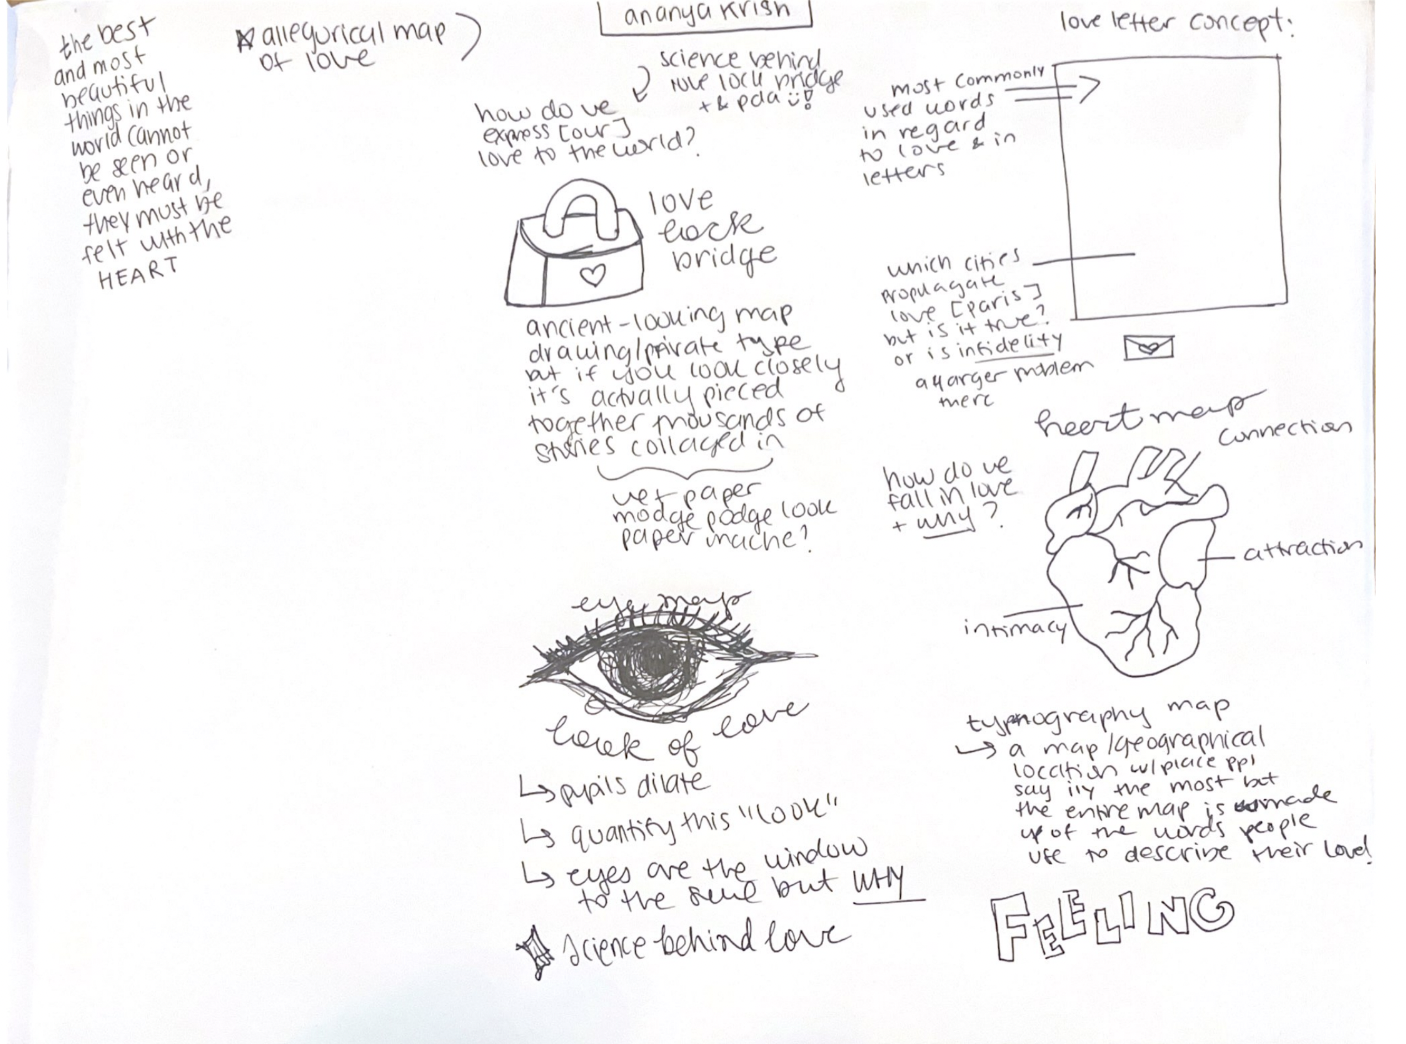 ananya krish
the best
and most
beautiful
things in the
world cannot
be seen or
even heard,
they must be
felt with the
HEART
allegorical map
of love
science behind
love lock bridge
+ & pda
how do we
express [our]
love to the world?
love
lock
bridge
ancient-looking map
drawing/private type
but if you look closely
it's actually pieced
together thousands of
stories collaged in
wet paper
modge podge look
paper mache?
eye map
look of love
pupils dilate
quantify this "look"
eyes are the window
to the soul but WHY
science behind love
love letter concept:
most commonly
used words
in regard
to love & in
letters
which cities
propagate
love [paris]
but is it true?
or is infidelity
a larger problem
there
heart map
connection
how do we
fall in love
+ why?
attraction
intimacy
typography map
a map/geographical
location w/place ppl
say ily the most but
the entire map is made
up of the words people
use to describe their love!
FEELING